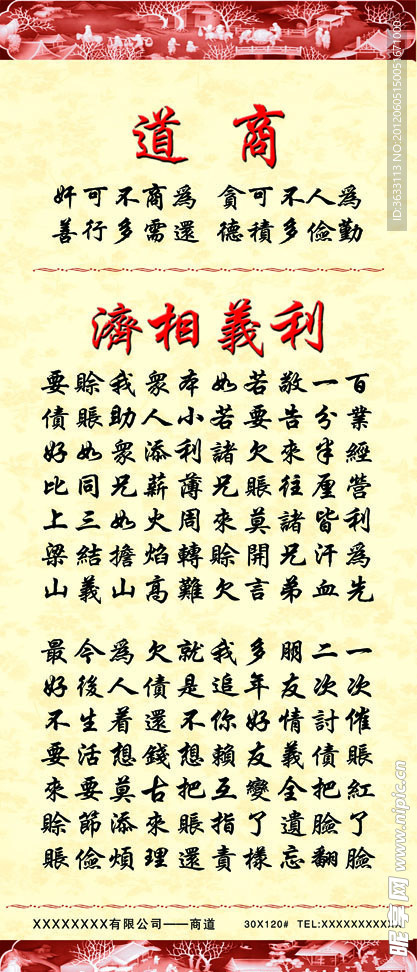 商道
為人不可貪 為商不可奸
勤儉多積德 還需多行善
利義相濟
百業經營利為先
一分半厘皆汗血
敬告來往諸兄弟
若要欠賬莫開言
如若諸兄來賒欠
本小利薄周轉難
眾人添薪火焰高
我助眾兄如擔山
賒賬如同三結義
要債好比上梁山
一次催賬紅了臉
二次討債把臉翻
朋友情義全遺忘
多年好友變了樣
我追你賴互指責
就是不想把賬還
欠債還錢古來理
為人着想莫添煩
今後生活要節儉
最好不要來賒賬
XXXXXXXX有限公司——商道 30X120# TEL:XXXXXXXXXXX
ID:3633113 NO:20120605150051677000
昵图网 www.nipic.cn